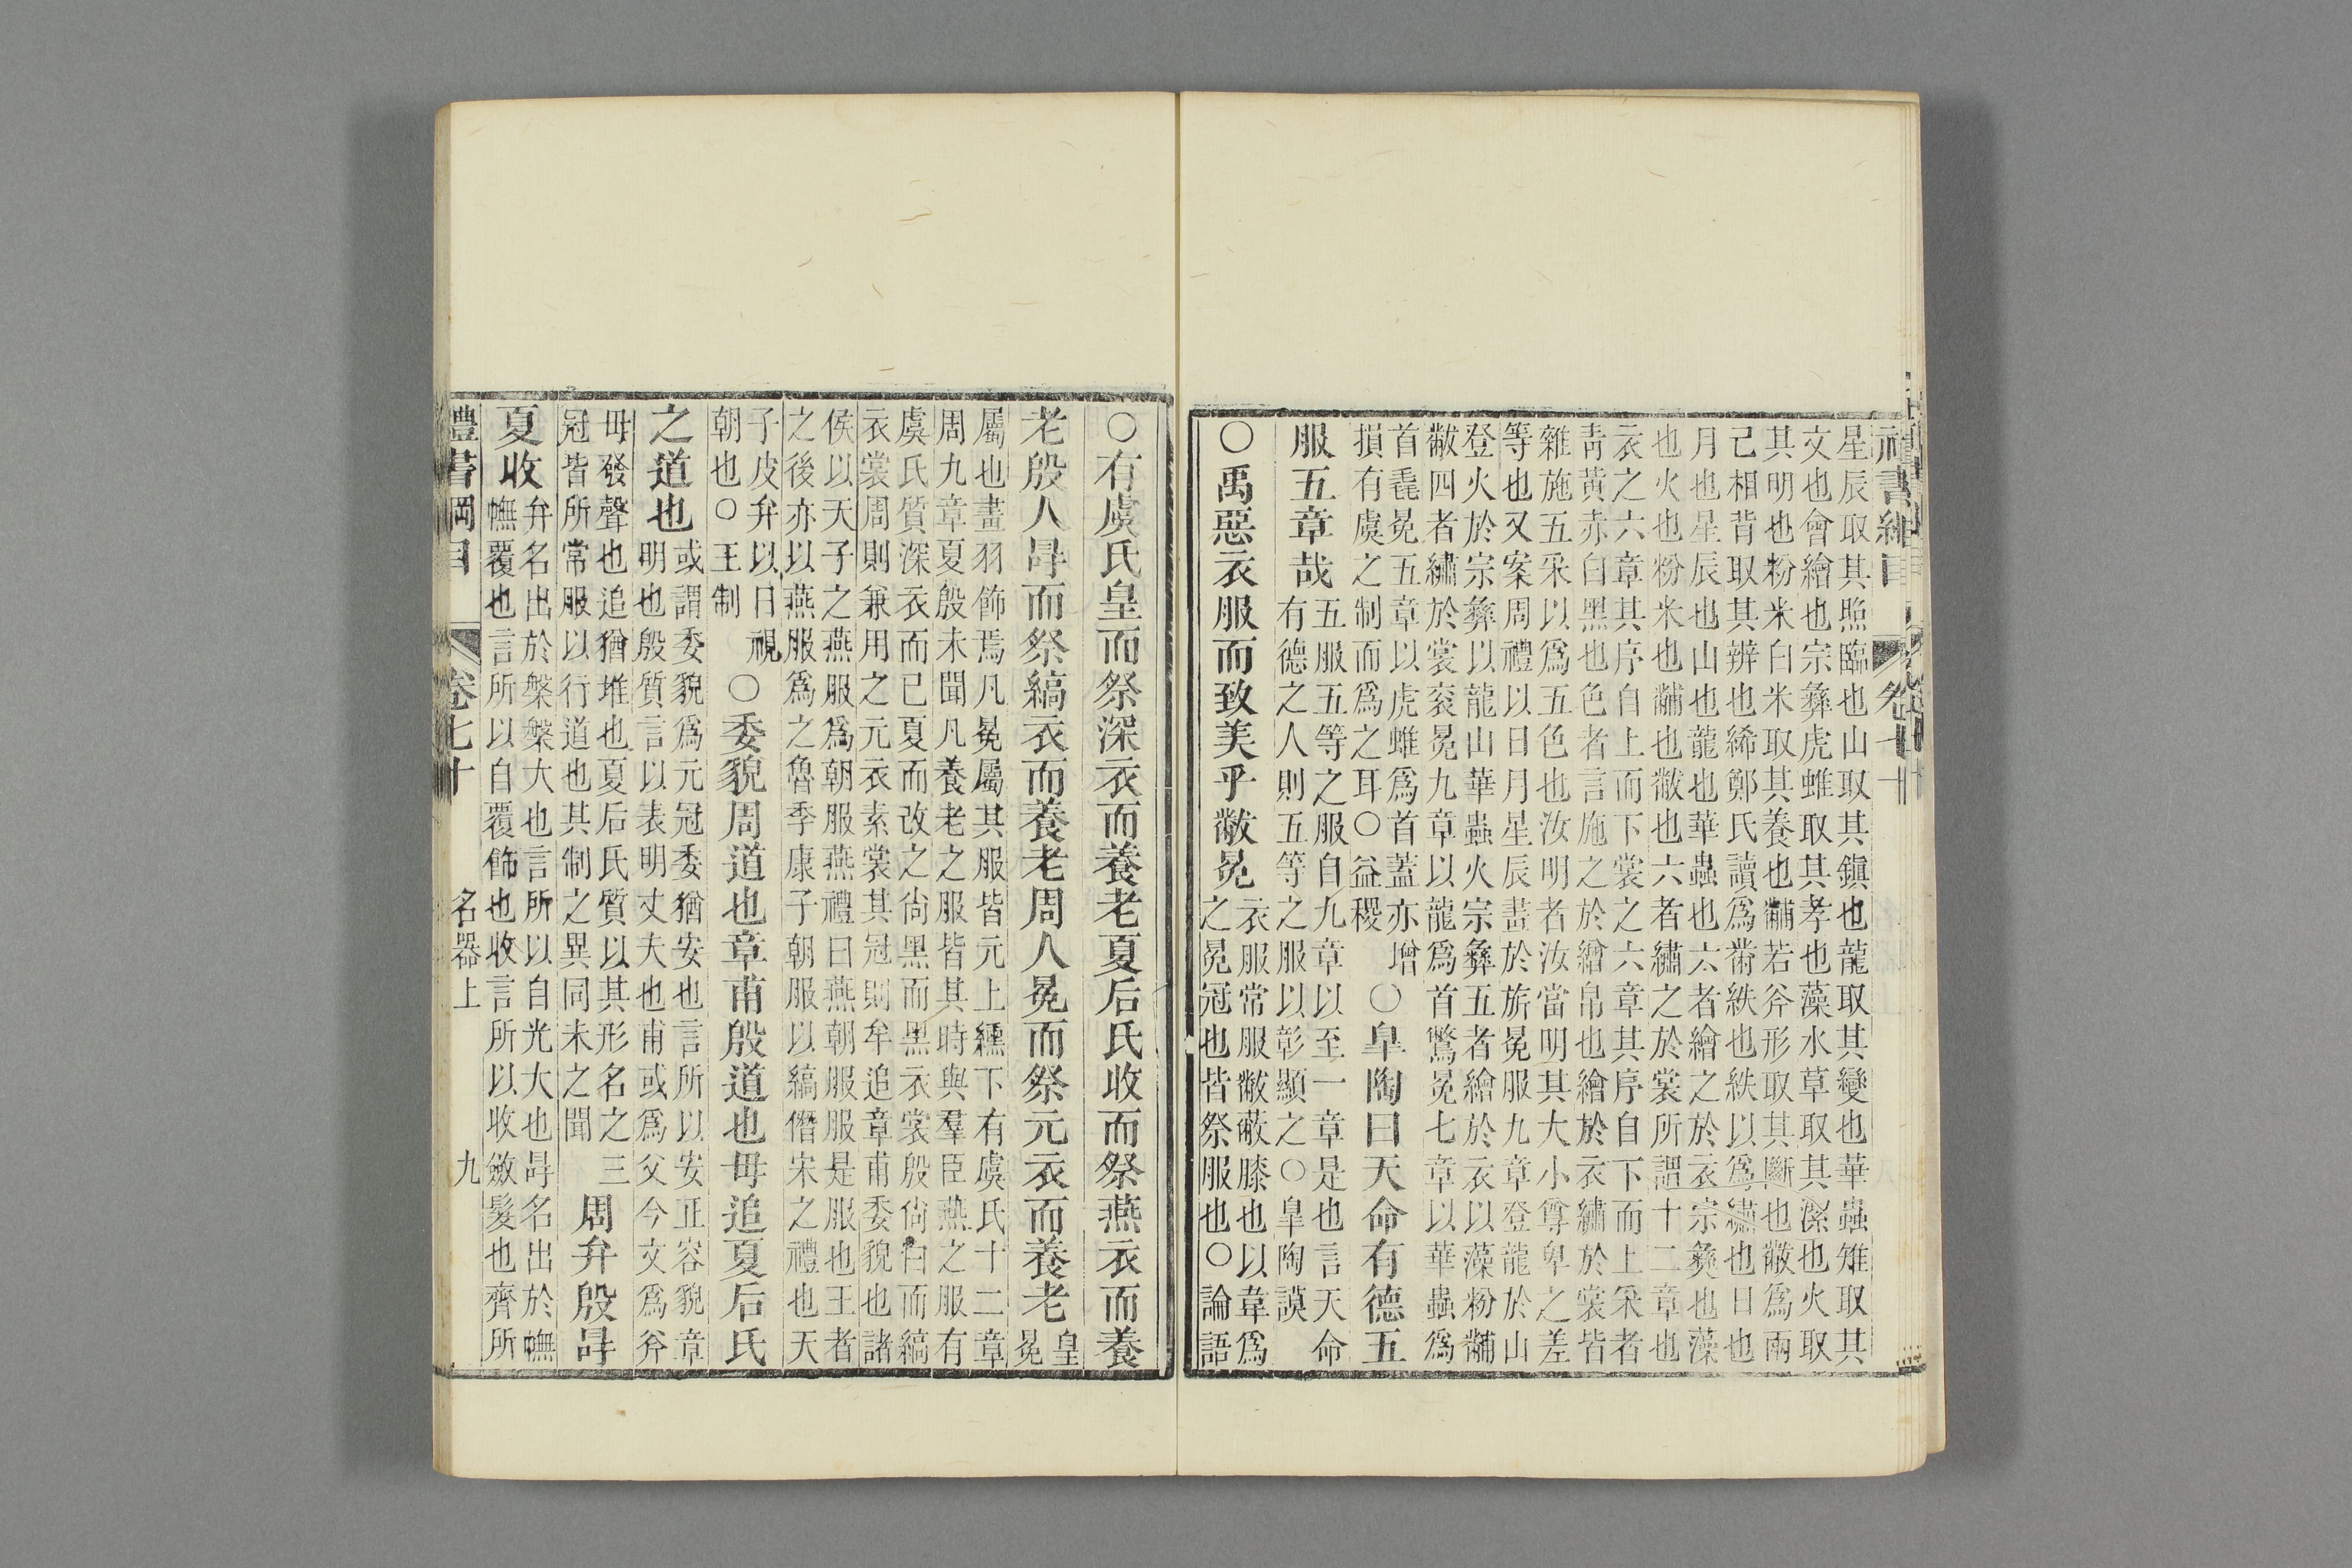 星辰取其照臨也山取其鎭也龍取其變也華蟲雉取其
文也會繪也宗彝虎蜼取其孝也藻水草取其潔也火取
其明也粉米白米取其養也黼若斧形取其斷也黻爲兩
己相背取其辨也絺鄭氏讀爲黹紩也紩以爲繡也日也
月也星辰也山也龍也華蟲也六者繪之於衣宗彝也藻
也火也粉米也黼也黻也六者繡之於裳所謂十二章也
衣之六章其序自上而下裳之六章其序自下而上采者
靑黃赤白黑也色者言施之於繒帛也繪於衣繡於裳皆
雜施五采以爲五色也汝明者汝當明其大小尊卑之差
等也又案周禮以日月星辰畫於旂冕服九章登龍於山
登火於宗彝以龍山華蟲火宗彝五者繪於衣以藻粉黼
黻四者繡於裳袞冕九章以龍爲首鷩冕七章以華蟲爲
首毳冕五章以虎蜼爲首蓋亦增
損有虞之制而爲之耳○益稷
○皐陶曰天命有德五
服五章哉
五服五等之服自九章以至一章是也言天命
有德之人則五等之服以彰顯之○皐陶謨
○禹惡衣服而致美乎黻冕
衣服常服黻蔽膝也以韋爲
之冕冠也皆祭服也○論語
○有虞氏皇而祭深衣而養老夏后氏收而祭燕衣而養
老殷人冔而祭縞衣而養老周人冕而祭元衣而養老
皇
冕
屬也畫羽飾焉凡冕屬其服皆元上纁下有虞氏十二章
周九章夏殷未聞凡養老之服皆其時與羣臣燕之服有
虞氏質深衣而已夏而改之尙黑而黑衣裳殷尙白而縞
衣裳周則兼用之元衣素裳其冠則牟追章甫委貌也諸
侯以天子之燕服爲朝服燕禮曰燕朝服服是服也王者
之後亦以燕服爲之魯季康子朝服以縞僭宋之禮也天
子皮弁以日視
朝也○王制
○委貌周道也章甫殷道也毋追夏后氏
之道也
或謂委貌爲元冠委猶安也言所以安正容貌章
明也殷質言以表明丈夫也甫或爲父今文爲斧
毋發聲也追猶堆也夏后氏質以其形名之三
冠皆所常服以行道也其制之異同未之聞
周弁殷冔
夏收
弁名出於槃槃大也言所以自光大也冔名出於幠
幠覆也言所以自覆飾也收言所以收斂髮也齊所
禮書綱目
卷七十
名器上
九